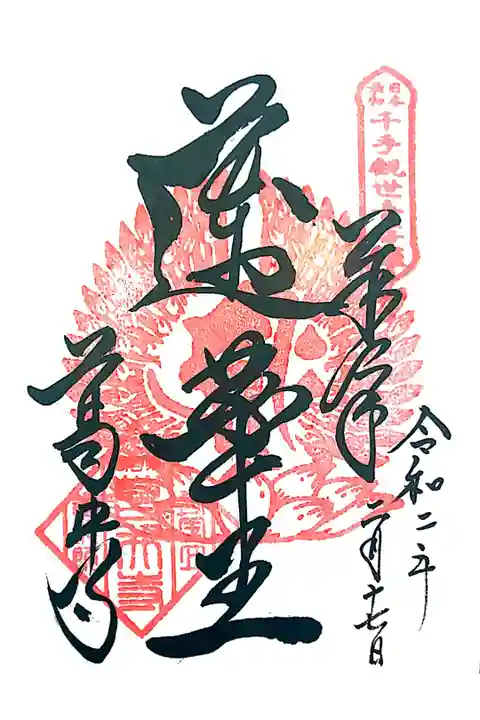 日本最初
千手観世音
奉拝
令和二年
二月十七日
蓮華王
葛井寺